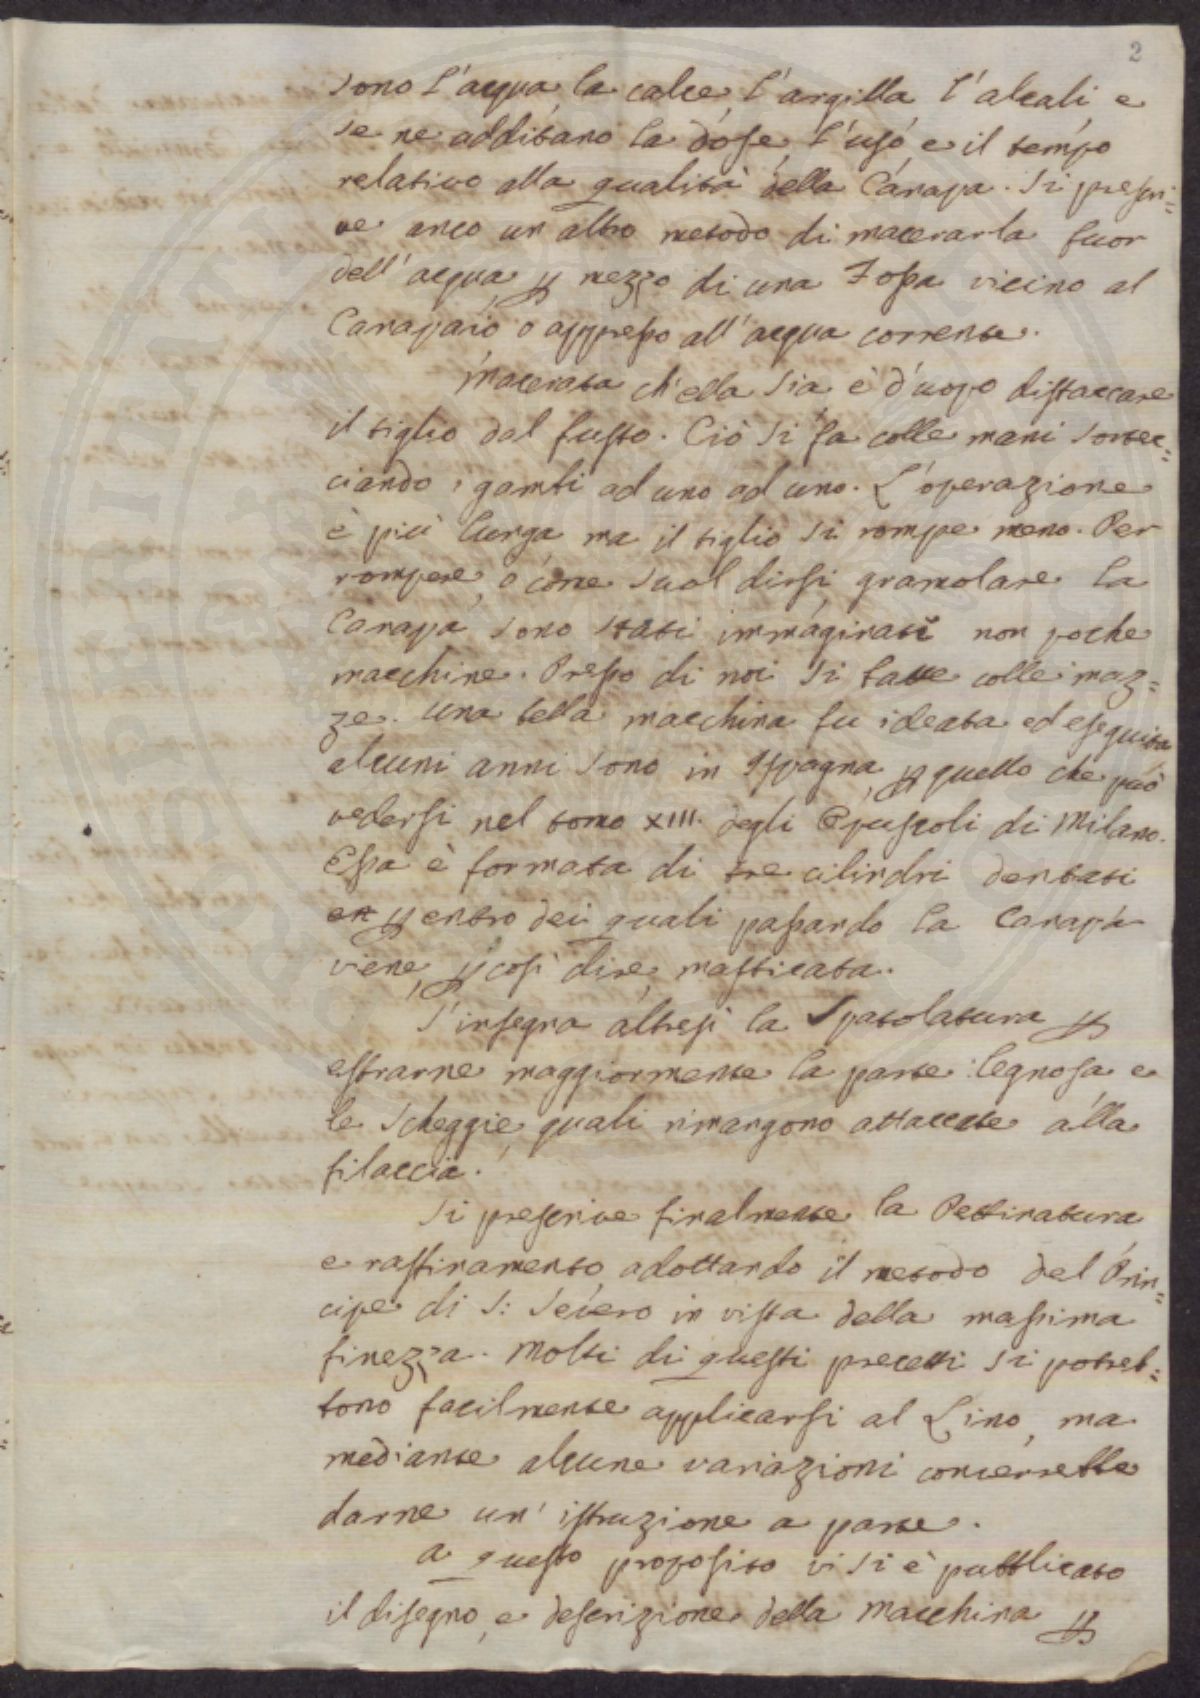 2
sono l'acqua, la calce, l'argilla l'alcali e
se ne additano la dose, l'uso e il tempo
relativo alla qualità della Canapa. Si prescri=
ve anco un altro metodo di macerarla fuor
dell'acqua, p mezzo di una Fossa vicino al
Canapaio o appresso all'acqua corrente.
Macerata ch'ella sia è d'uopo distaccare
il tiglio dal fusto. Ciò si fa colle mani scortec=
ciando i gambi ad uno ad uno. L'operazione
è più lunga ma il tiglio si rompe meno. Per
rompere, o come suol dirsi gramolare la
Canapa sono stati immaginati non poche
macchine. Presso di noi si batte colle maz=
ze. Una bella macchina fu ideata ed eseguita
alcuni anni sono in Ispagna, p quello che può
vedersi nel tomo XIII. degli Opuscoli di Milano.
Essa è formata di tre cilindri dentati
p entro dei quali passando la Canapa
viene, p così dire, masticata.
S'insegna altresì la Spatolatura p
estrarne maggiormente la parte legnosa e
le scheggie, quali rimangono attaccate alla
filaccia.
Si prescrive finalmente la Pettinatura
e raffinamento adottando il metodo del Prin=
cipe di S: Severo in vista della massima
finezza. Molti di questi precetti si potreb=
bono facilmente applicarsi al Lino, ma
mediante alcune variazioni converrebbe
darne un'istruzione a parte.
A questo proposito vi si è pubblicato
il disegno, e descrizione della Macchina p